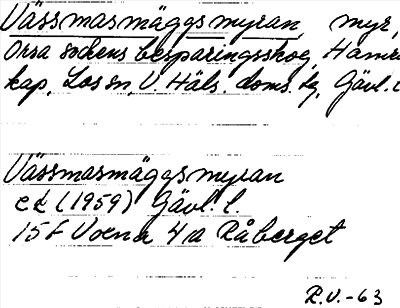 Vässmasmäggsmyran, myr,
Orsa sockens besparingsskog, Hamra
kap., Los sn, V. Häls. doms. tg, Gävl. l
Vässmasmäggsmyran
ek (1959) Gävl. l.
15F Voxna 4a Råberget
R.V.-63